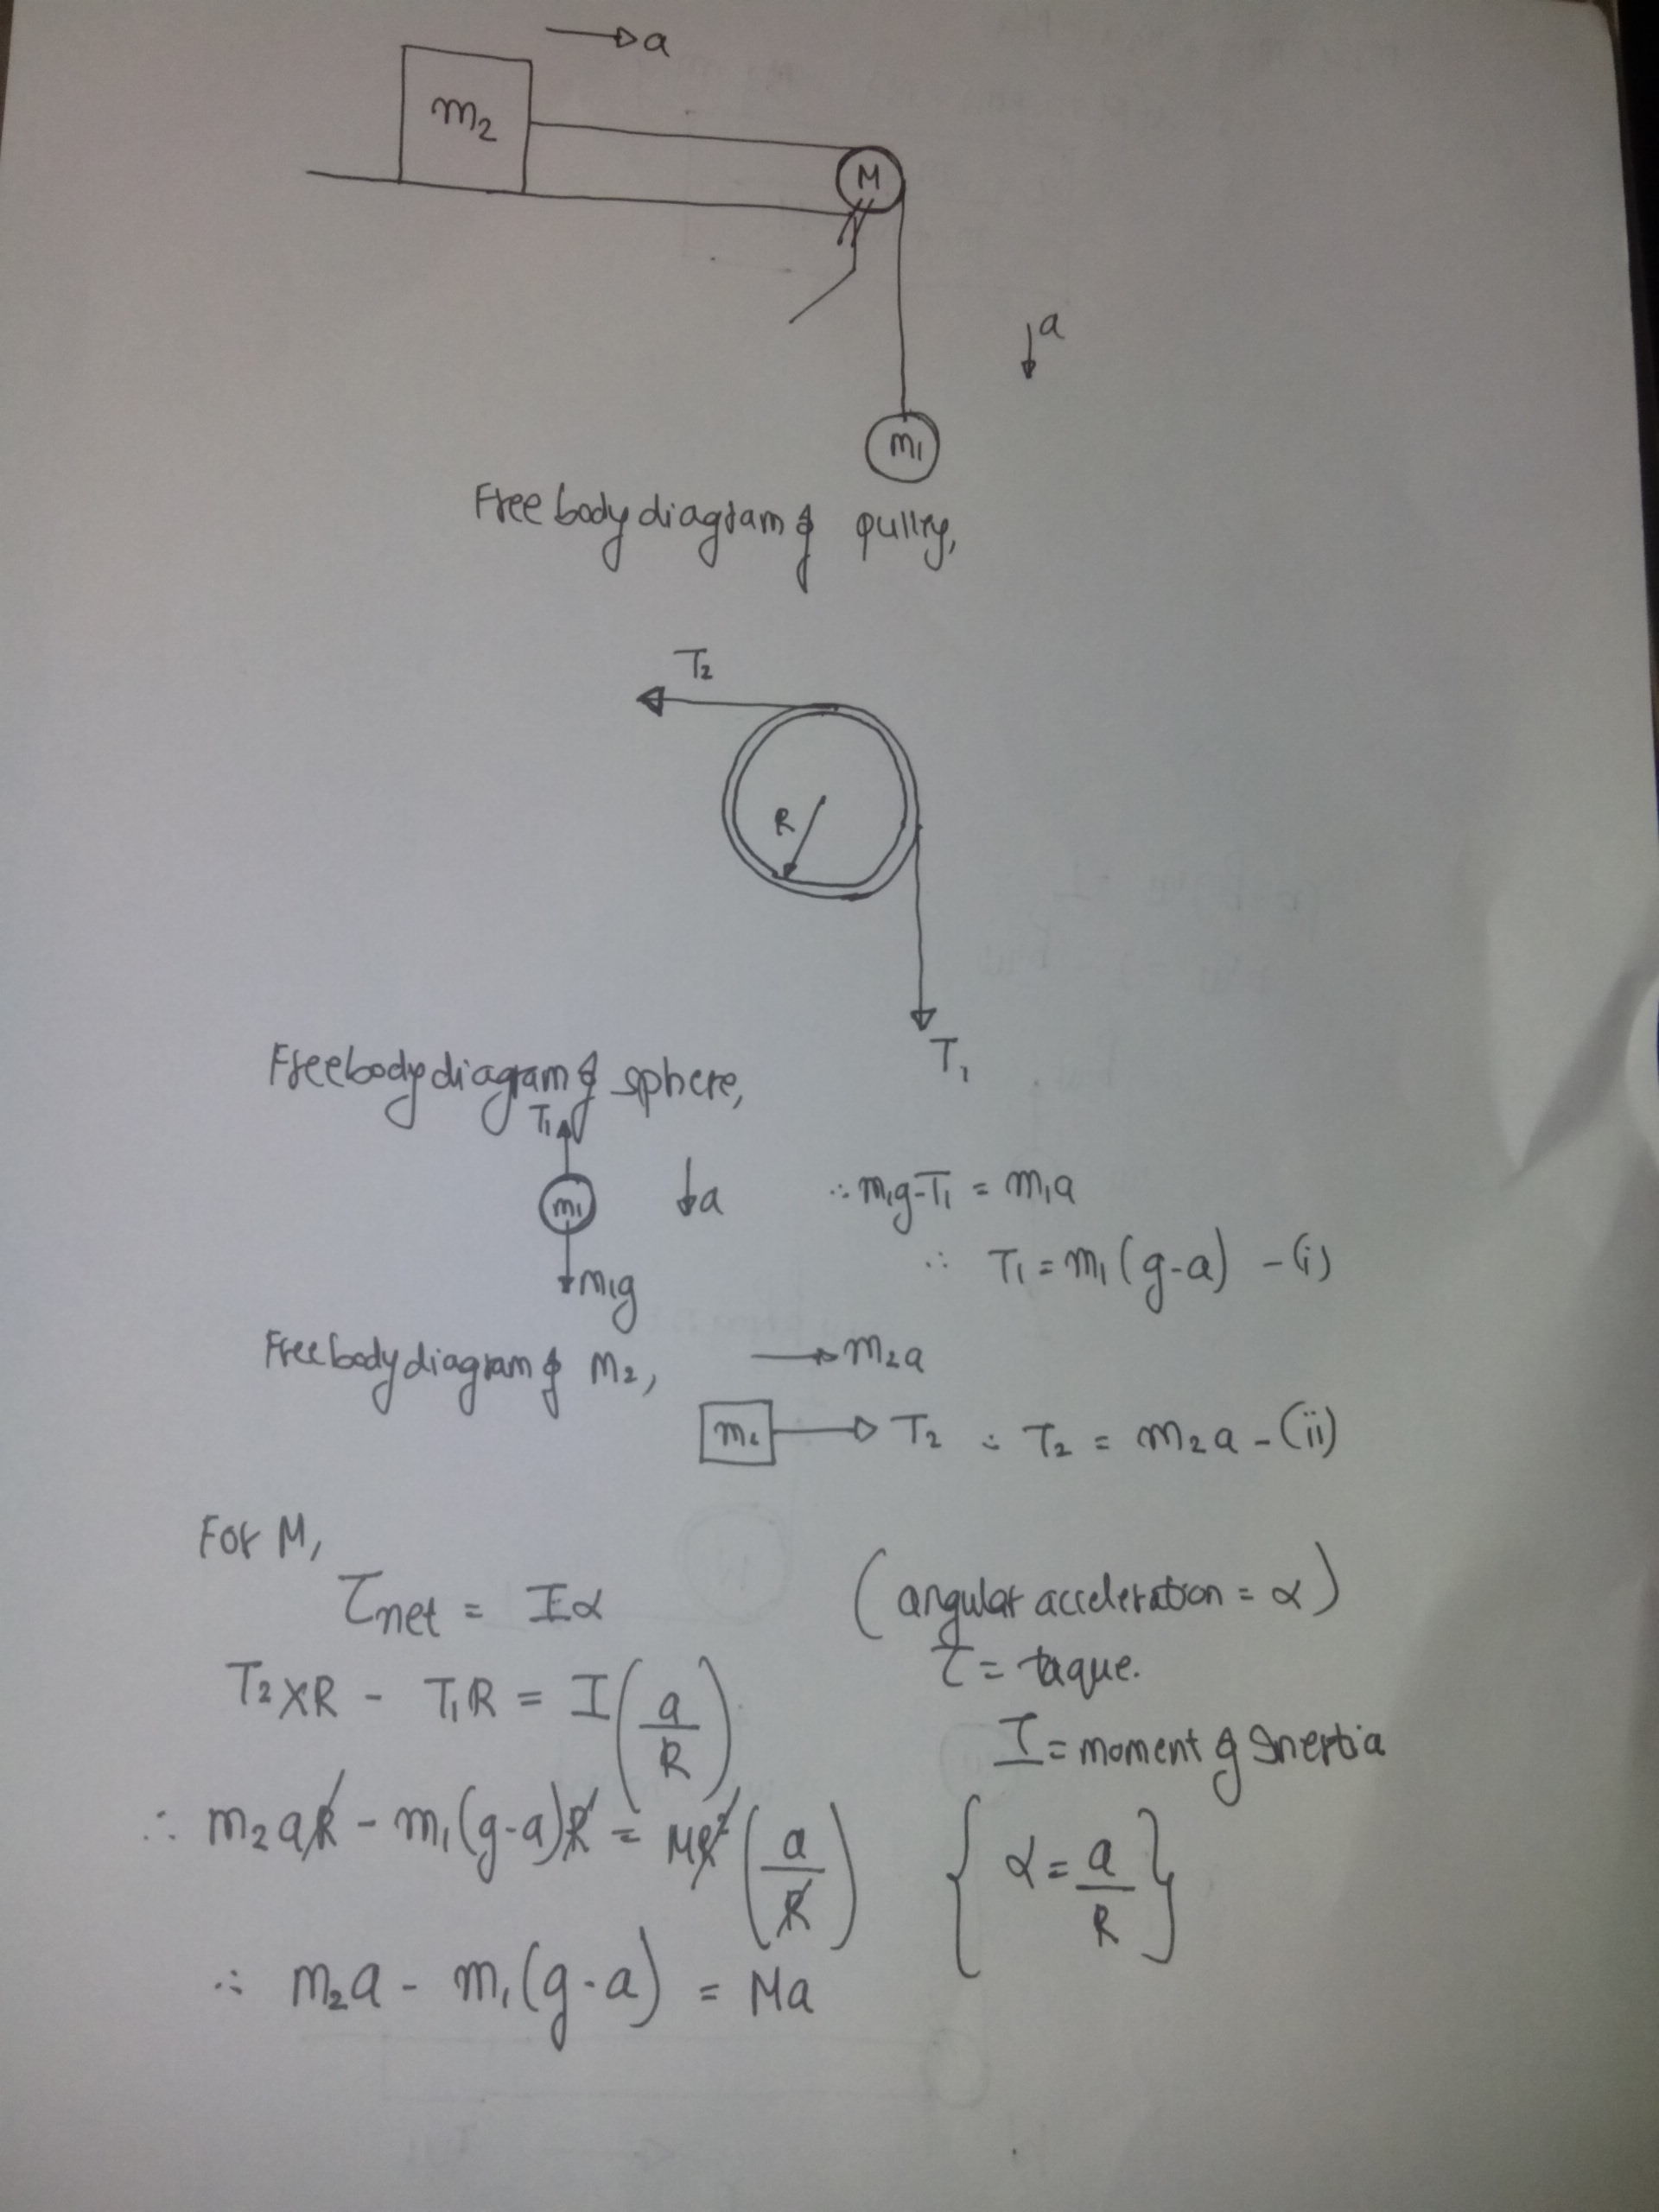 → a
m₂
M
↓ a
m₁
Free body diagram of pulley,
T₂
R
T₁
Free body diagram of sphere,
T₁
m₁ ↓a ∴ m₁g-T₁ = m₁a
∴ T₁ = m₁(g-a) - (i)
m₁g
Free body diagram of m₂, → m₂a
m₂ → T₂ ∴ T₂ = m₂a - (ii)
For M,
τnet = Iα (angular acceleration = α)
τ = taque.
T₂×R - T₁R = I(a/R)
I = moment of Inertia
∴ m₂aR - m₁(g-a)R = MR²(a/R) {α = a/R}
∴ m₂a - m₁(g-a) = Ma